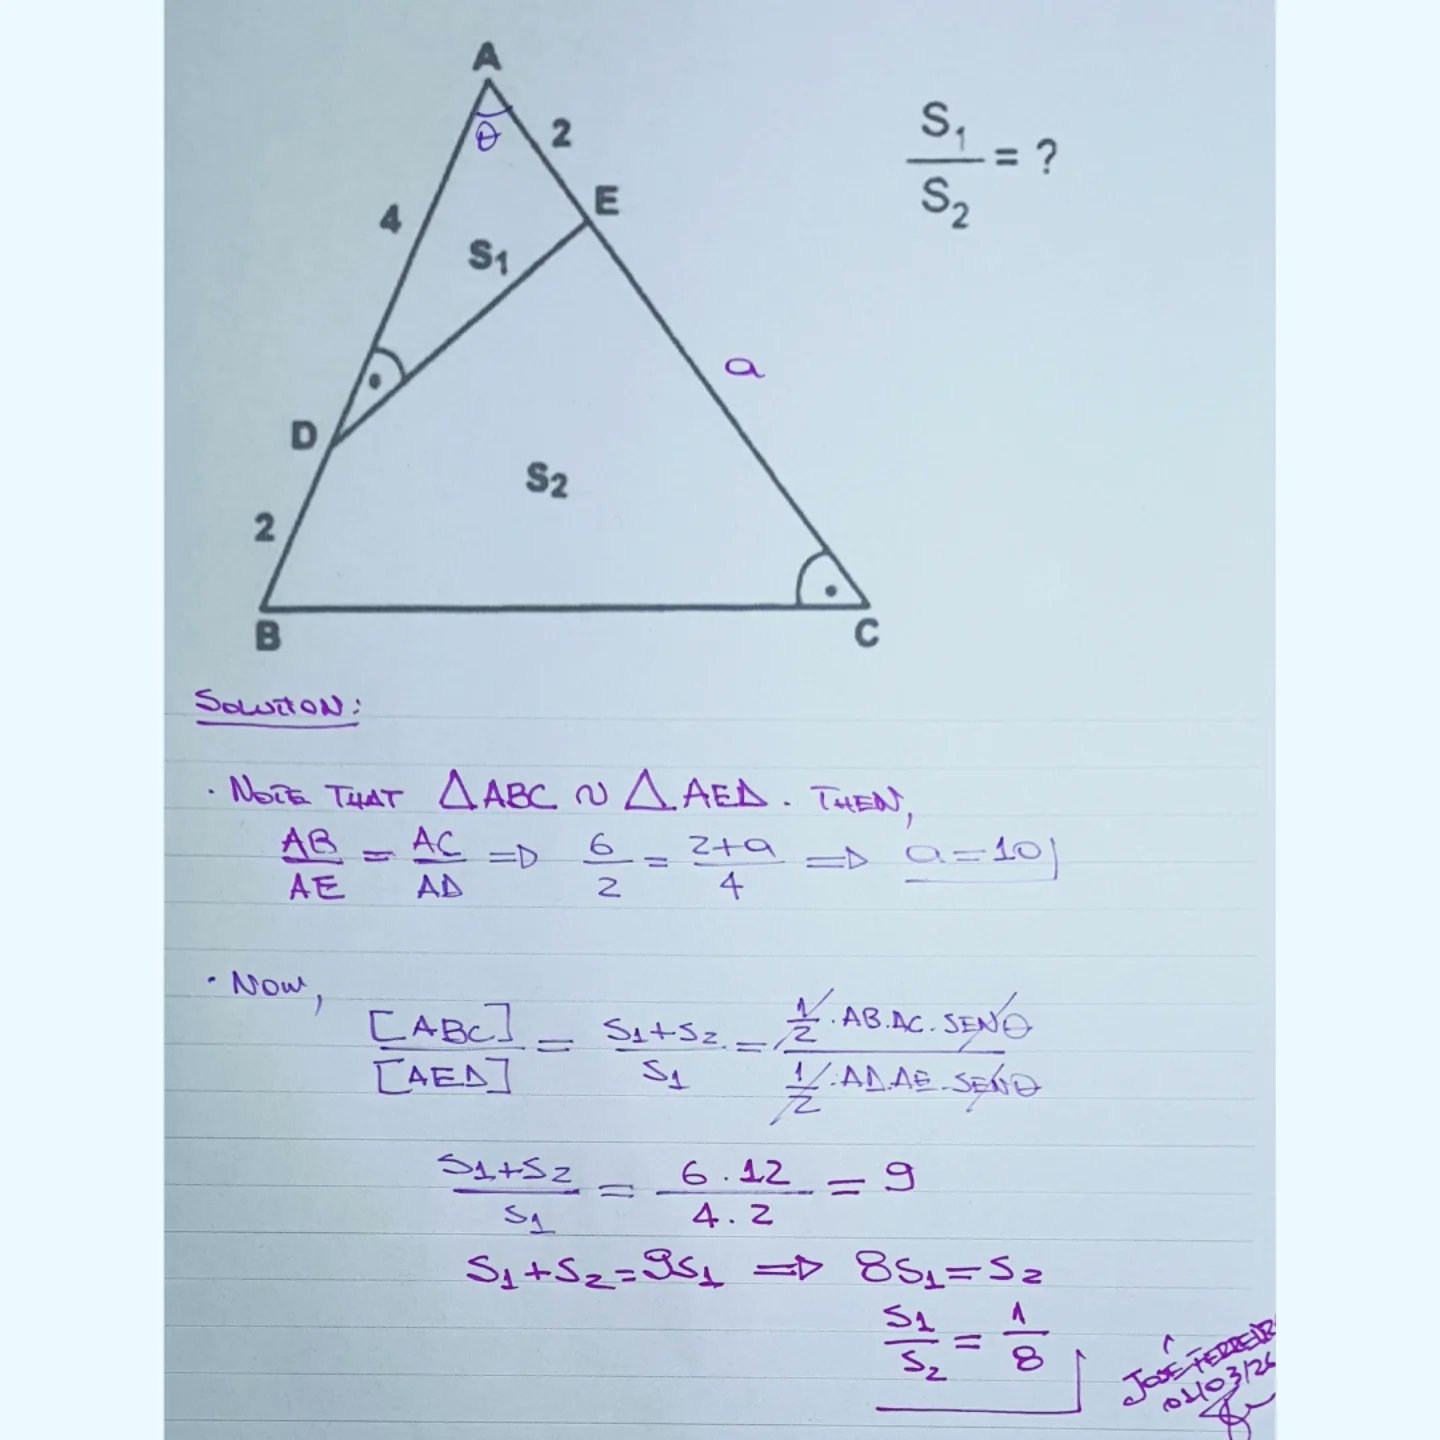 A
θ
2
S₁/S₂ = ?
E
4
S₁
a
D
S₂
2
B
C
SOLUTION:
· NOTE THAT △ABC ~ △AED. THEN,
AB/AE = AC/AD ⇒ 6/2 = (2+a)/4 ⇒ a=10
· NOW,
[ABC]/[AED] = (S₁+S₂)/S₁ = (1/2·AB·AC·SENθ)/(1/2·AD·AE·SENθ)
(S₁+S₂)/S₁ = (6·12)/(4·2) = 9
S₁+S₂=9S₁ ⇒ 8S₁=S₂
S₁/S₂ = 1/8
JOSÉ FERREIR
01/03/26